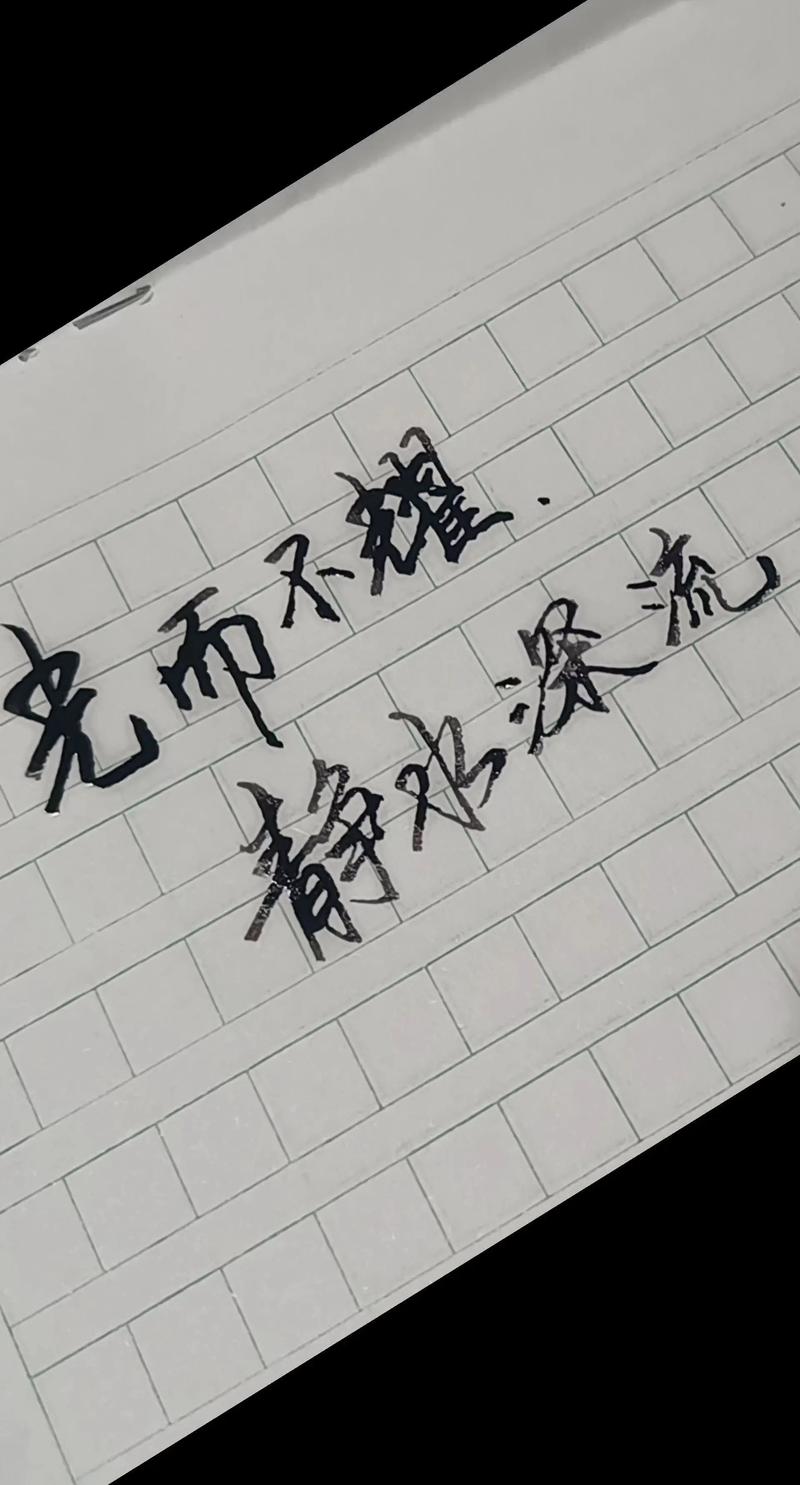 光而不耀.
静水深流